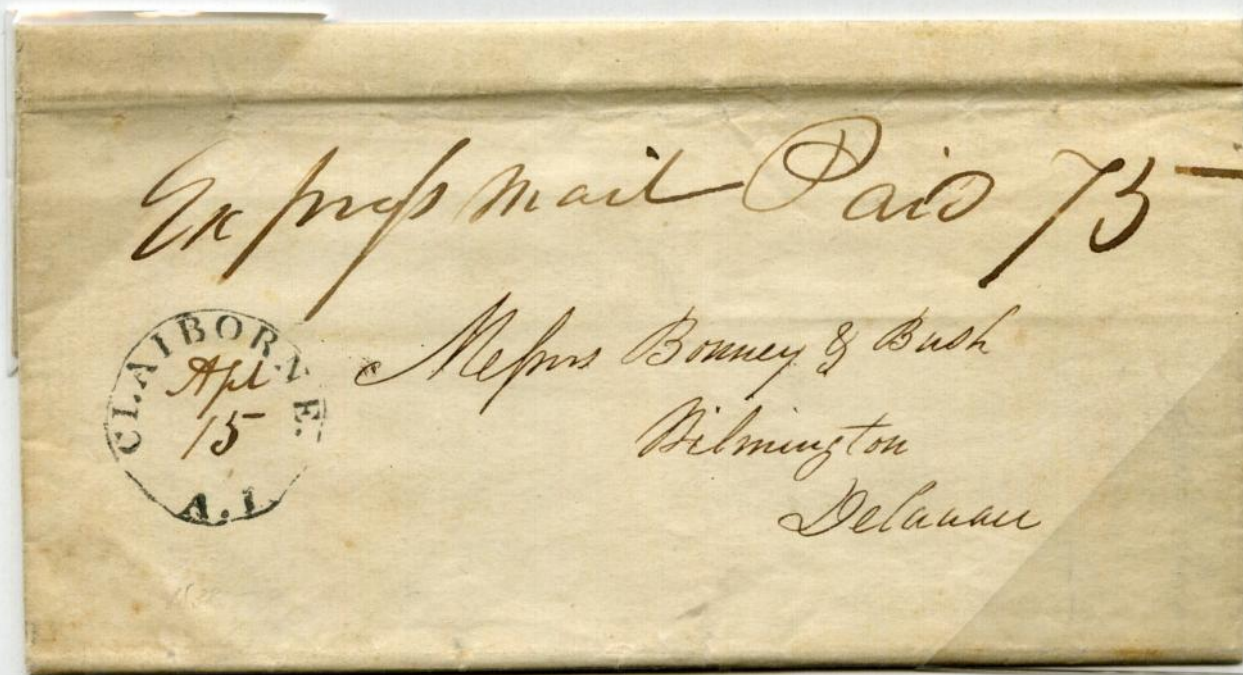 Express Mail Paid 75
CLAIBORNE.
Apl
15
A.L
Messrs Bonney & Bush
Wilmington
Delaware